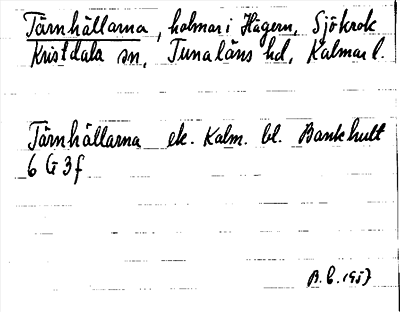 Tärnhällarna, holmar i Hägern, Sjökrok
Kristdala sn, Tunaläns hd, Kalmar l.
Tärnhällarna ek. Kalm. bl. Bankhult
6 G 3f